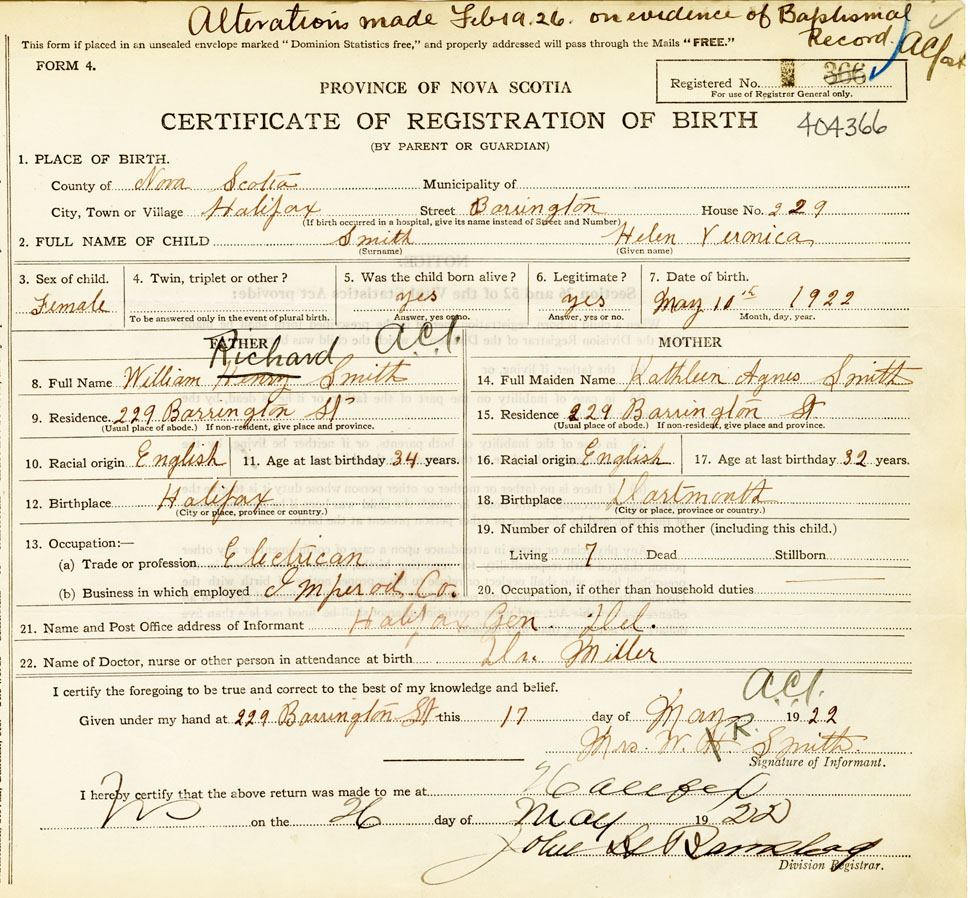 Alterations made Feb 19.26. on evidence of Baptismal Record.
This form if placed in an unsealed envelope marked "Dominion Statistics free," and properly addressed will pass through the Mails "FREE."
FORM 4.
Registered No. 366
For use of Registrar General only.
PROVINCE OF NOVA SCOTIA
CERTIFICATE OF REGISTRATION OF BIRTH
404366
(BY PARENT OR GUARDIAN)
1. PLACE OF BIRTH.
County of Nova Scotia Municipality of
City, Town or Village Halifax Street Barrington House No. 229
(If birth occurred in a hospital, give its name instead of Street and Number)
2. FULL NAME OF CHILD Smith Helen Veronica
(Surname) (Given name)
3. Sex of child. 4. Twin, triplet or other? 5. Was the child born alive? 6. Legitimate? 7. Date of birth.
Female yes yes May 10th 1922
To be answered only in the event of plural birth. Answer, yes or no. Answer, yes or no. Month, day, year.
FATHER MOTHER
Richard
8. Full Name William Henry Smith 14. Full Maiden Name Kathleen Agnes Smith
9. Residence. 229 Barrington St 15. Residence 229 Barrington St
(Usual place of abode.) If non-resident, give place and province. (Usual place of abode.) If non-resident, give place and province.
10. Racial origin English 11. Age at last birthday 34 years. 16. Racial origin English 17. Age at last birthday 32 years.
12. Birthplace Halifax 18. Birthplace Dartmouth
(City or place, province or country.) (City or place, province or country.)
19. Number of children of this mother (including this child.)
13. Occupation:—
(a) Trade or profession Electrican Living 7 Dead Stillborn
(b) Business in which employed Imperoil Co. 20. Occupation, if other than household duties
21. Name and Post Office address of Informant Halifax Gen. Del.
22. Name of Doctor, nurse or other person in attendance at birth Dr. Miller
I certify the foregoing to be true and correct to the best of my knowledge and belief.
Given under my hand at 229 Barrington St this 17 day of May 1922
R.
Mrs. W. H. Smith.
Signature of Informant.
I hereby certify that the above return was made to me at Halifax
on the 26 day of May 1922
John
Division Registrar.